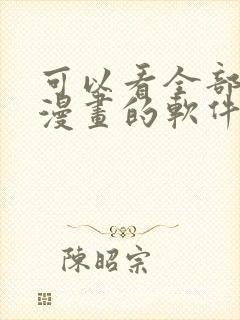 可以看全部
漫畫的軟件
陳昭宗